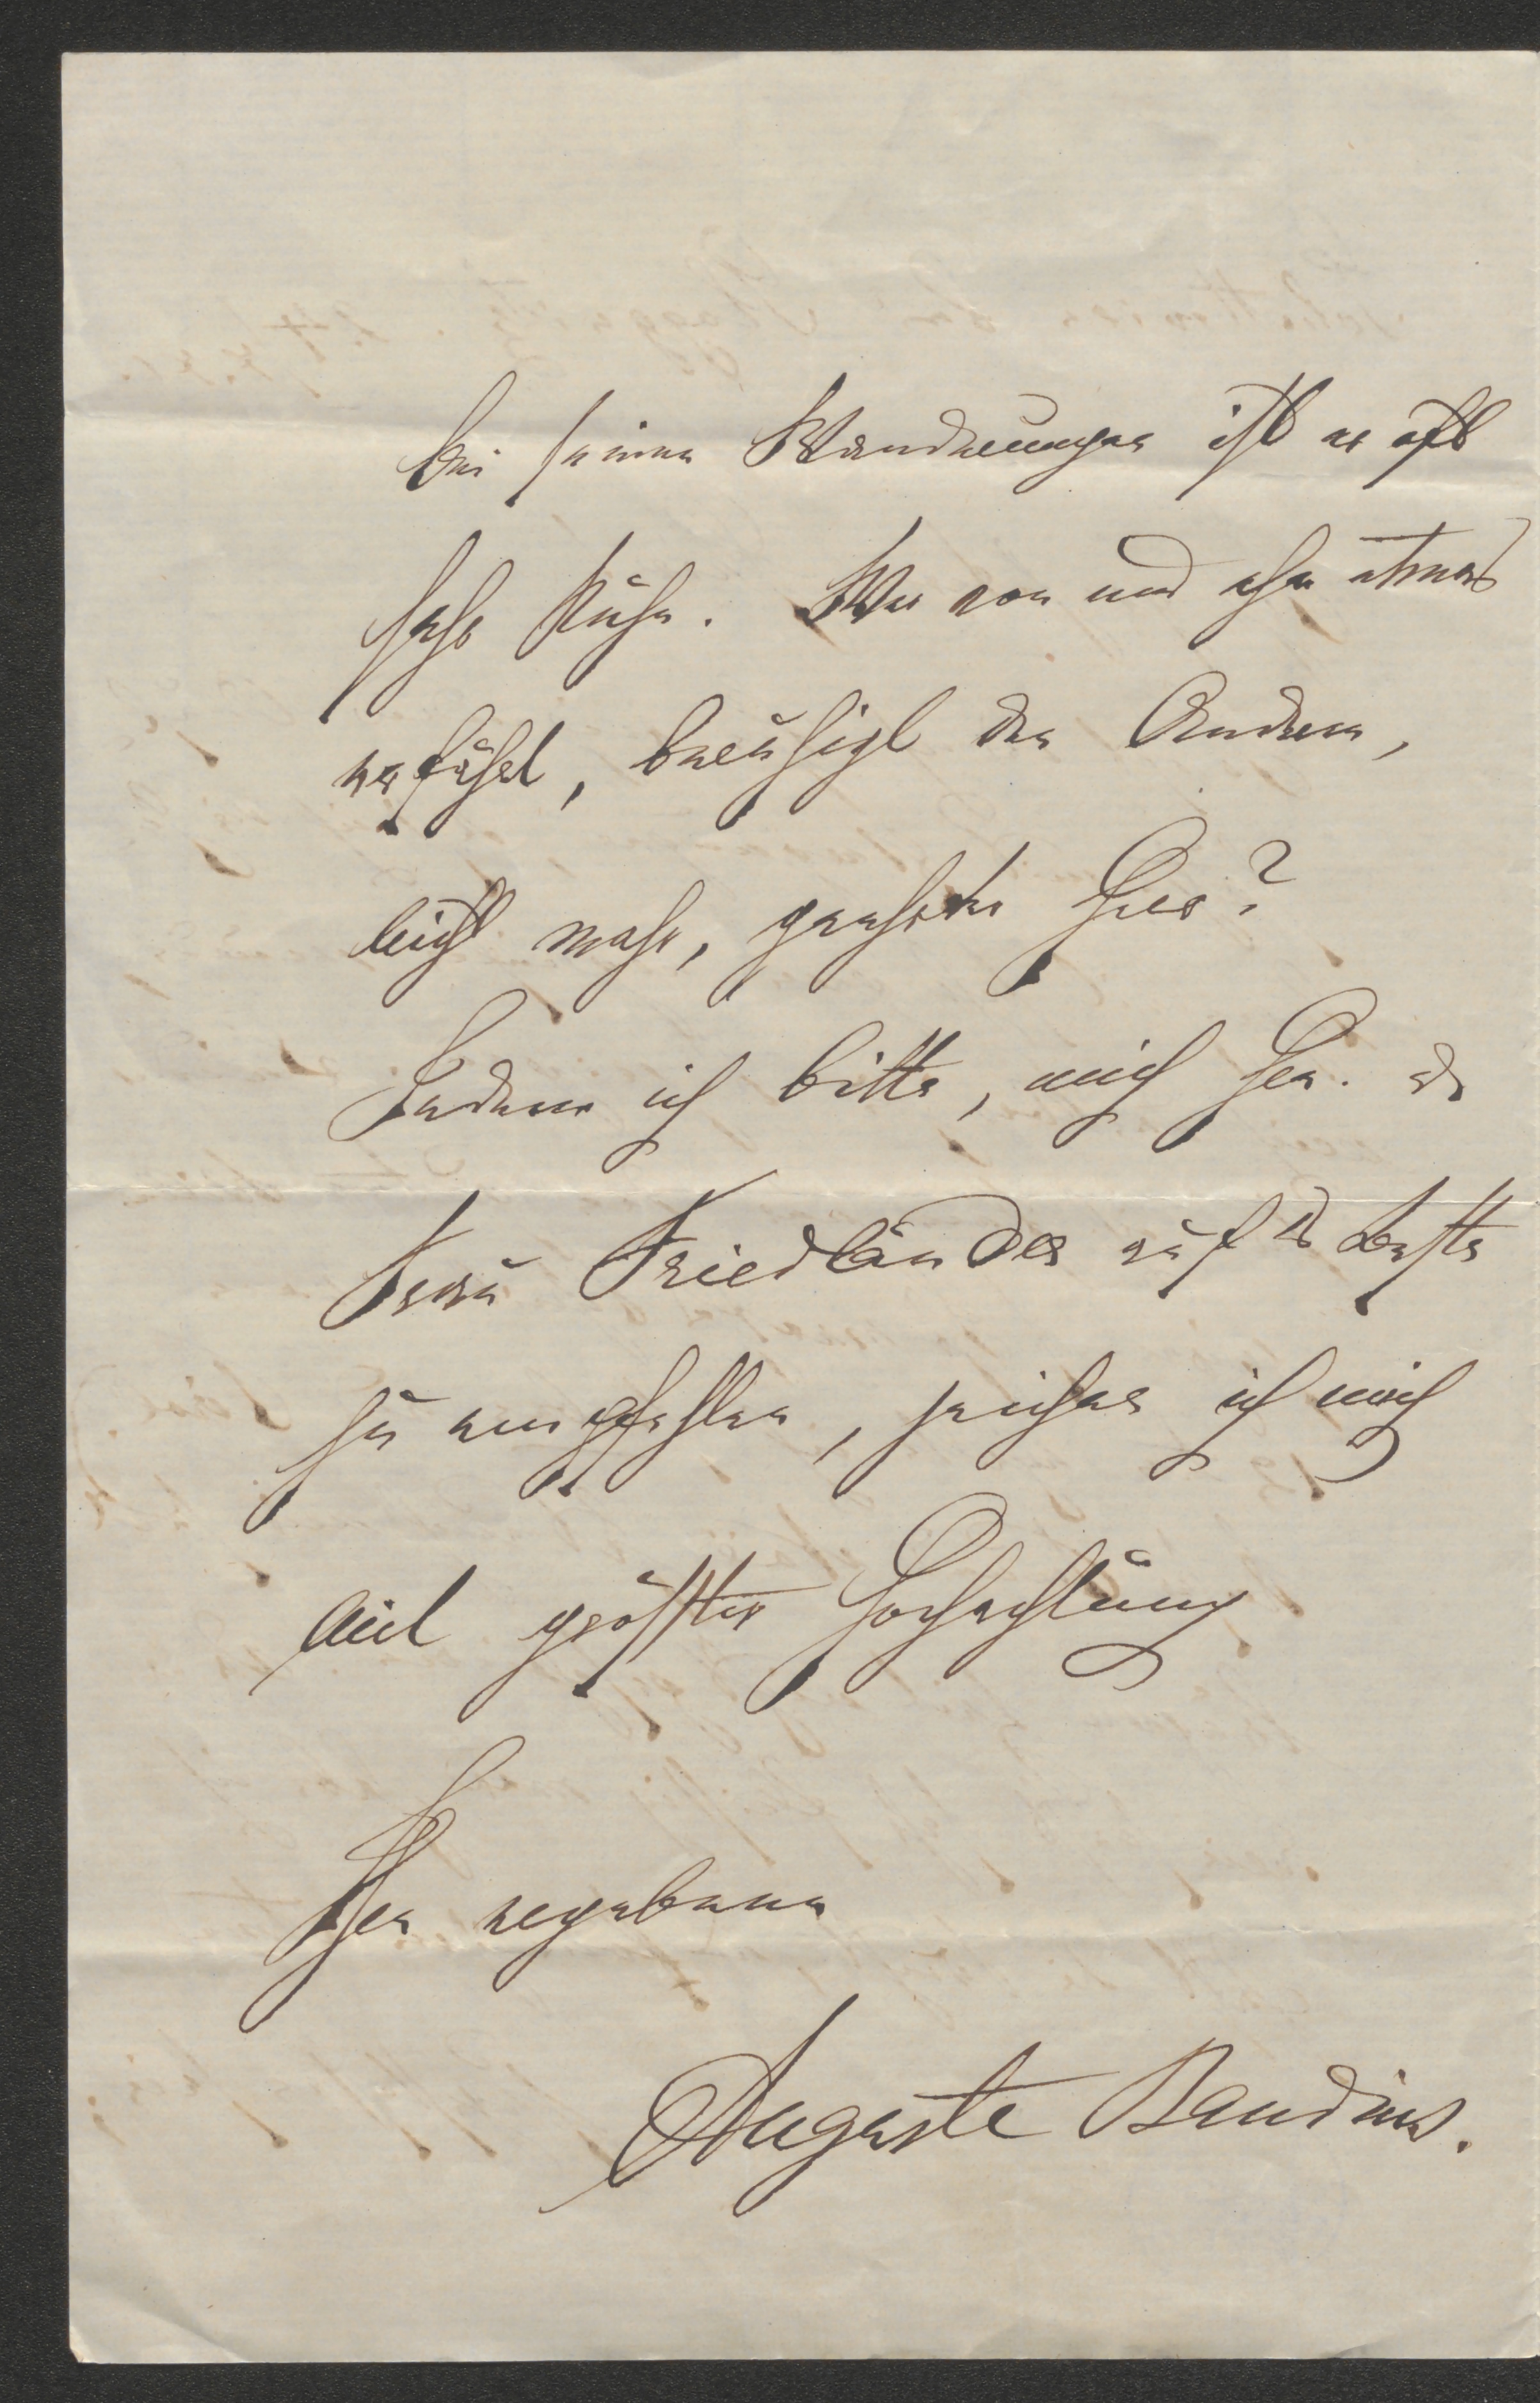 bei seinen Wanderungen ist er oft
sehr kühn. Wer von uns etwas
erfährt, benachrichtigt den Andern,
nicht wahr, geehrter Herr?
Indem ich bitte, mich Ihrer
Frau Friedländer auf's Beste
zu empfehlen, zeichne ich mich
mit größter Hochachtung
Ihre ergebene
Auguste Baudius.